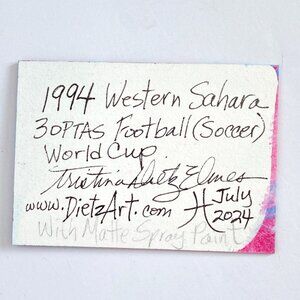 1994 Western Sahara
30PTAS Football (Soccer)
World Cup
Tristina Dietz Elmes
www.DietzArt.com July
2024
With Matte Spray Paint